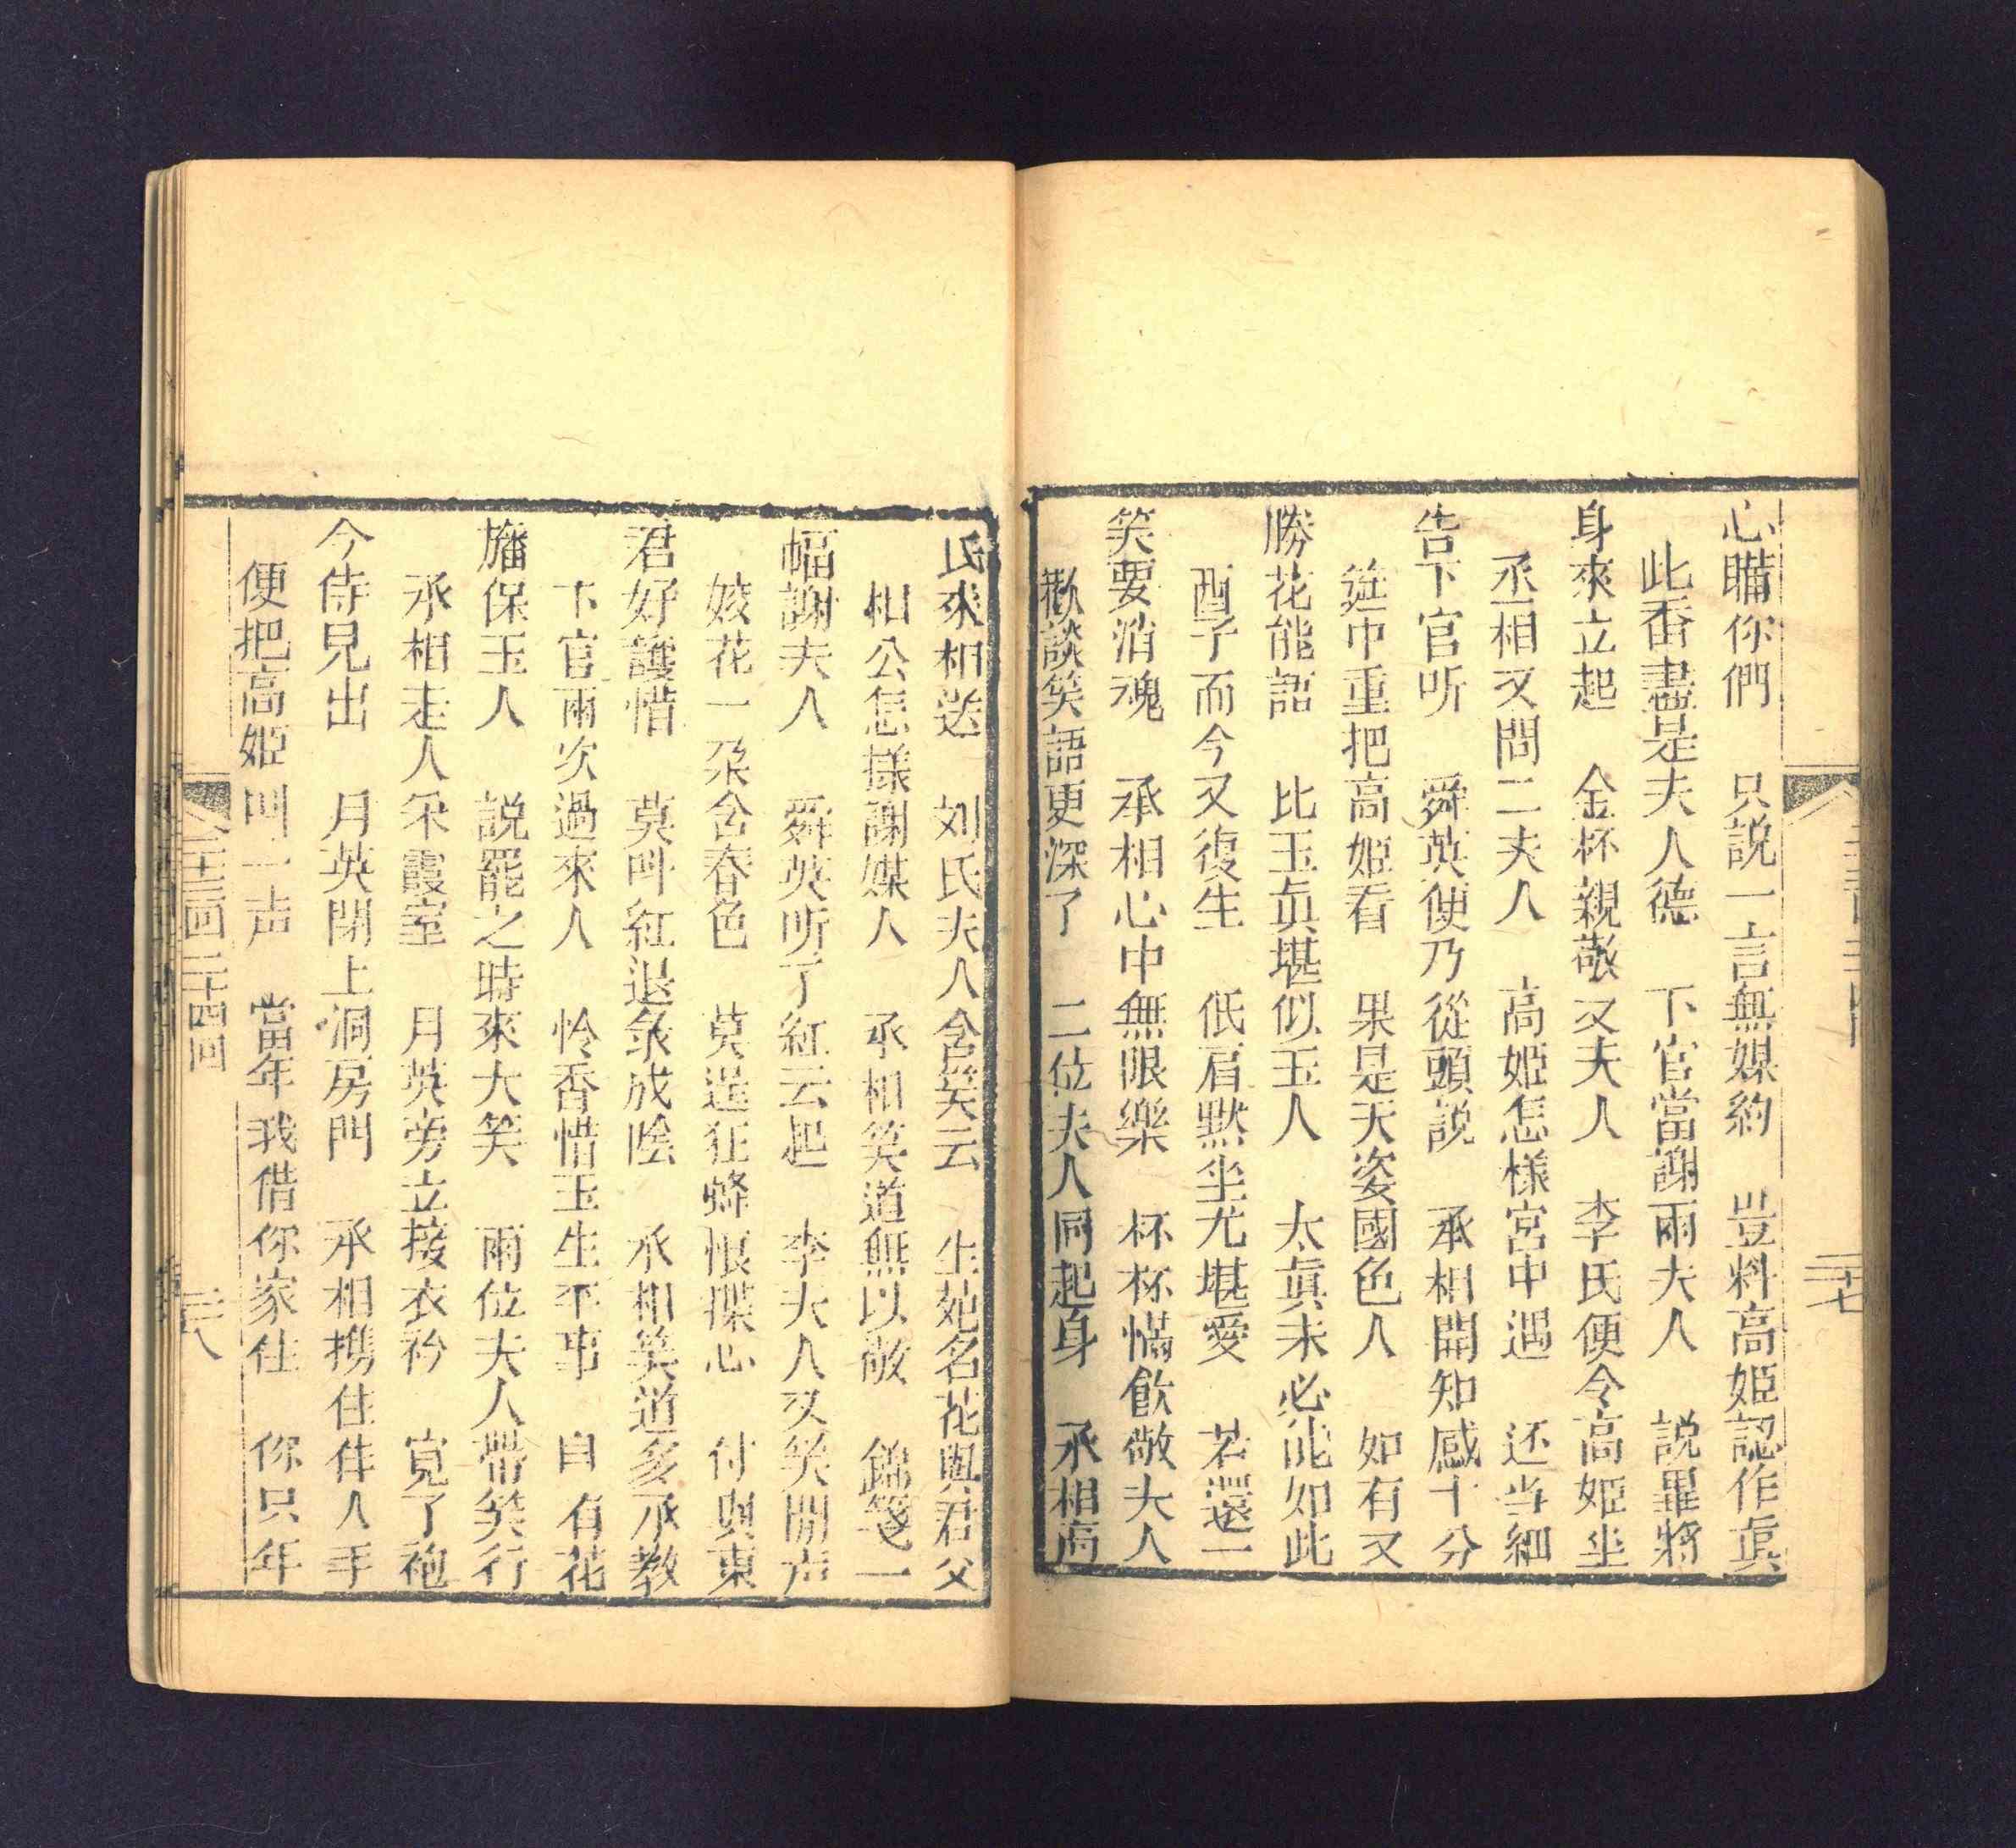 心瞞你們　只説一言無媒約　豈料高姬認作眞
此番盡是夫人德　下官當謝兩夫人　説罷將
身來立起　金杯親敬又夫人　李氏便令高姬坐
丞相又問二夫人　高姬怎樣宮中遇　还当細
告下官听　舜英便乃從頭説　承相開知感十分
筵中重把高姬看　果是天姿國色人　如有又
勝花能詔　比玉眞堪似玉人　太眞未必能如此
酉子而今又復生　低眉默坐尤堪愛　若還一
笑要消魂　承相心中無限樂　杯杯滿飲敬夫人
歡談笑語更深了　二位夫人同起身　承相高
氏來相送　刘氏夫人含笑云　生妃名花與君父
相公怎様謝媒人　承相笑道無以敬　錦箋一
幅謝夫人　舜英听了紅云起　李夫人又笑開声
姣花一朶含春色　莫逞狂蜂恨揲心　付與東
君好護惜　莫呌紅退彔成陰　承相笑道多承教
下官兩次過來人　怜香惜玉生平事　自有花
旛保玉人　説罷之時來大笑　兩位夫人帶笑行
承相走人采霞室　月英旁立接衣衿　寬了袍
今侍見出　月英閉上洞房門　承相携住佳人手
便把高姬呌一声　當年我借你家住　你只年
二十三回二十四回
三八
三七